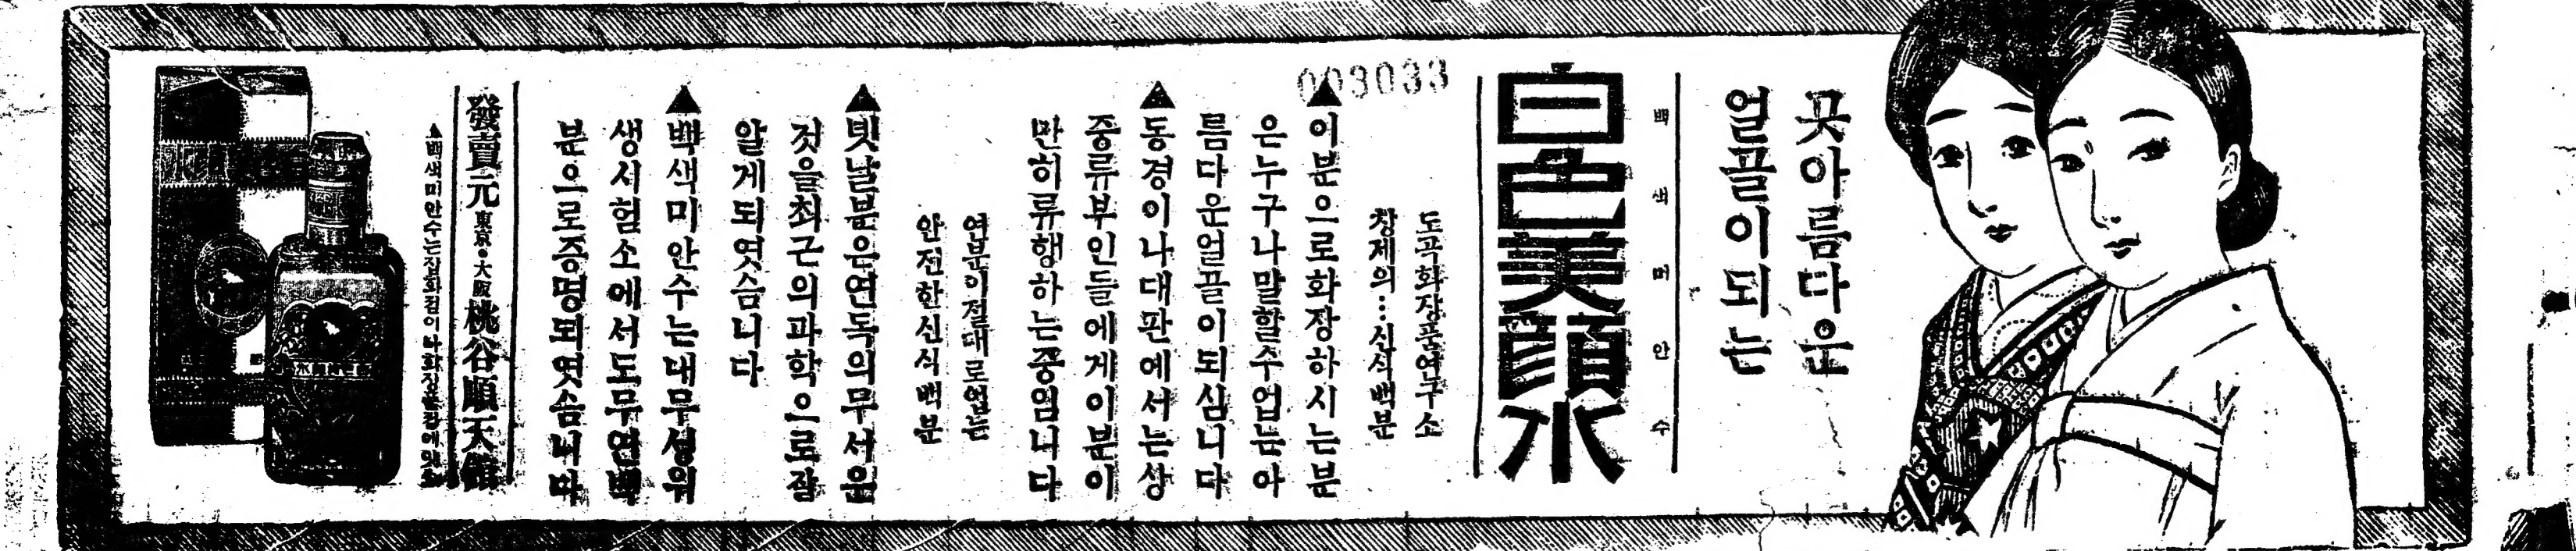 곳아름다운
얼골이되는
백색미안수
白色美顔水
도곡화장품연구소
창제의…신식백분
003033
▲이분으로화장하시는분
은누구나말할수업는아
름다운얼골이되심니다
▲동경이나대판에서는상
중류부인들에게이분이
만히류행하는중임니다
연분이절대로업는
안전한신식백분
▲텟날분은연독의무서운
것을최근의과학으로잘
알게되엿슴니다
▲백색미안수는대무성위
생시험소에서도무연백
분으로증명되엿슴니다
發賣元 東京・大阪 桃谷順天館
▲백색미안수는잡화점이나화장품점에잇소